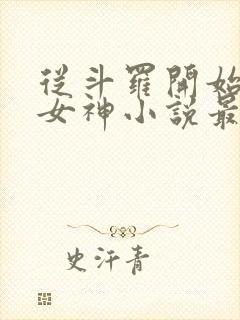 從斗羅開始
女神小說最
史汗青